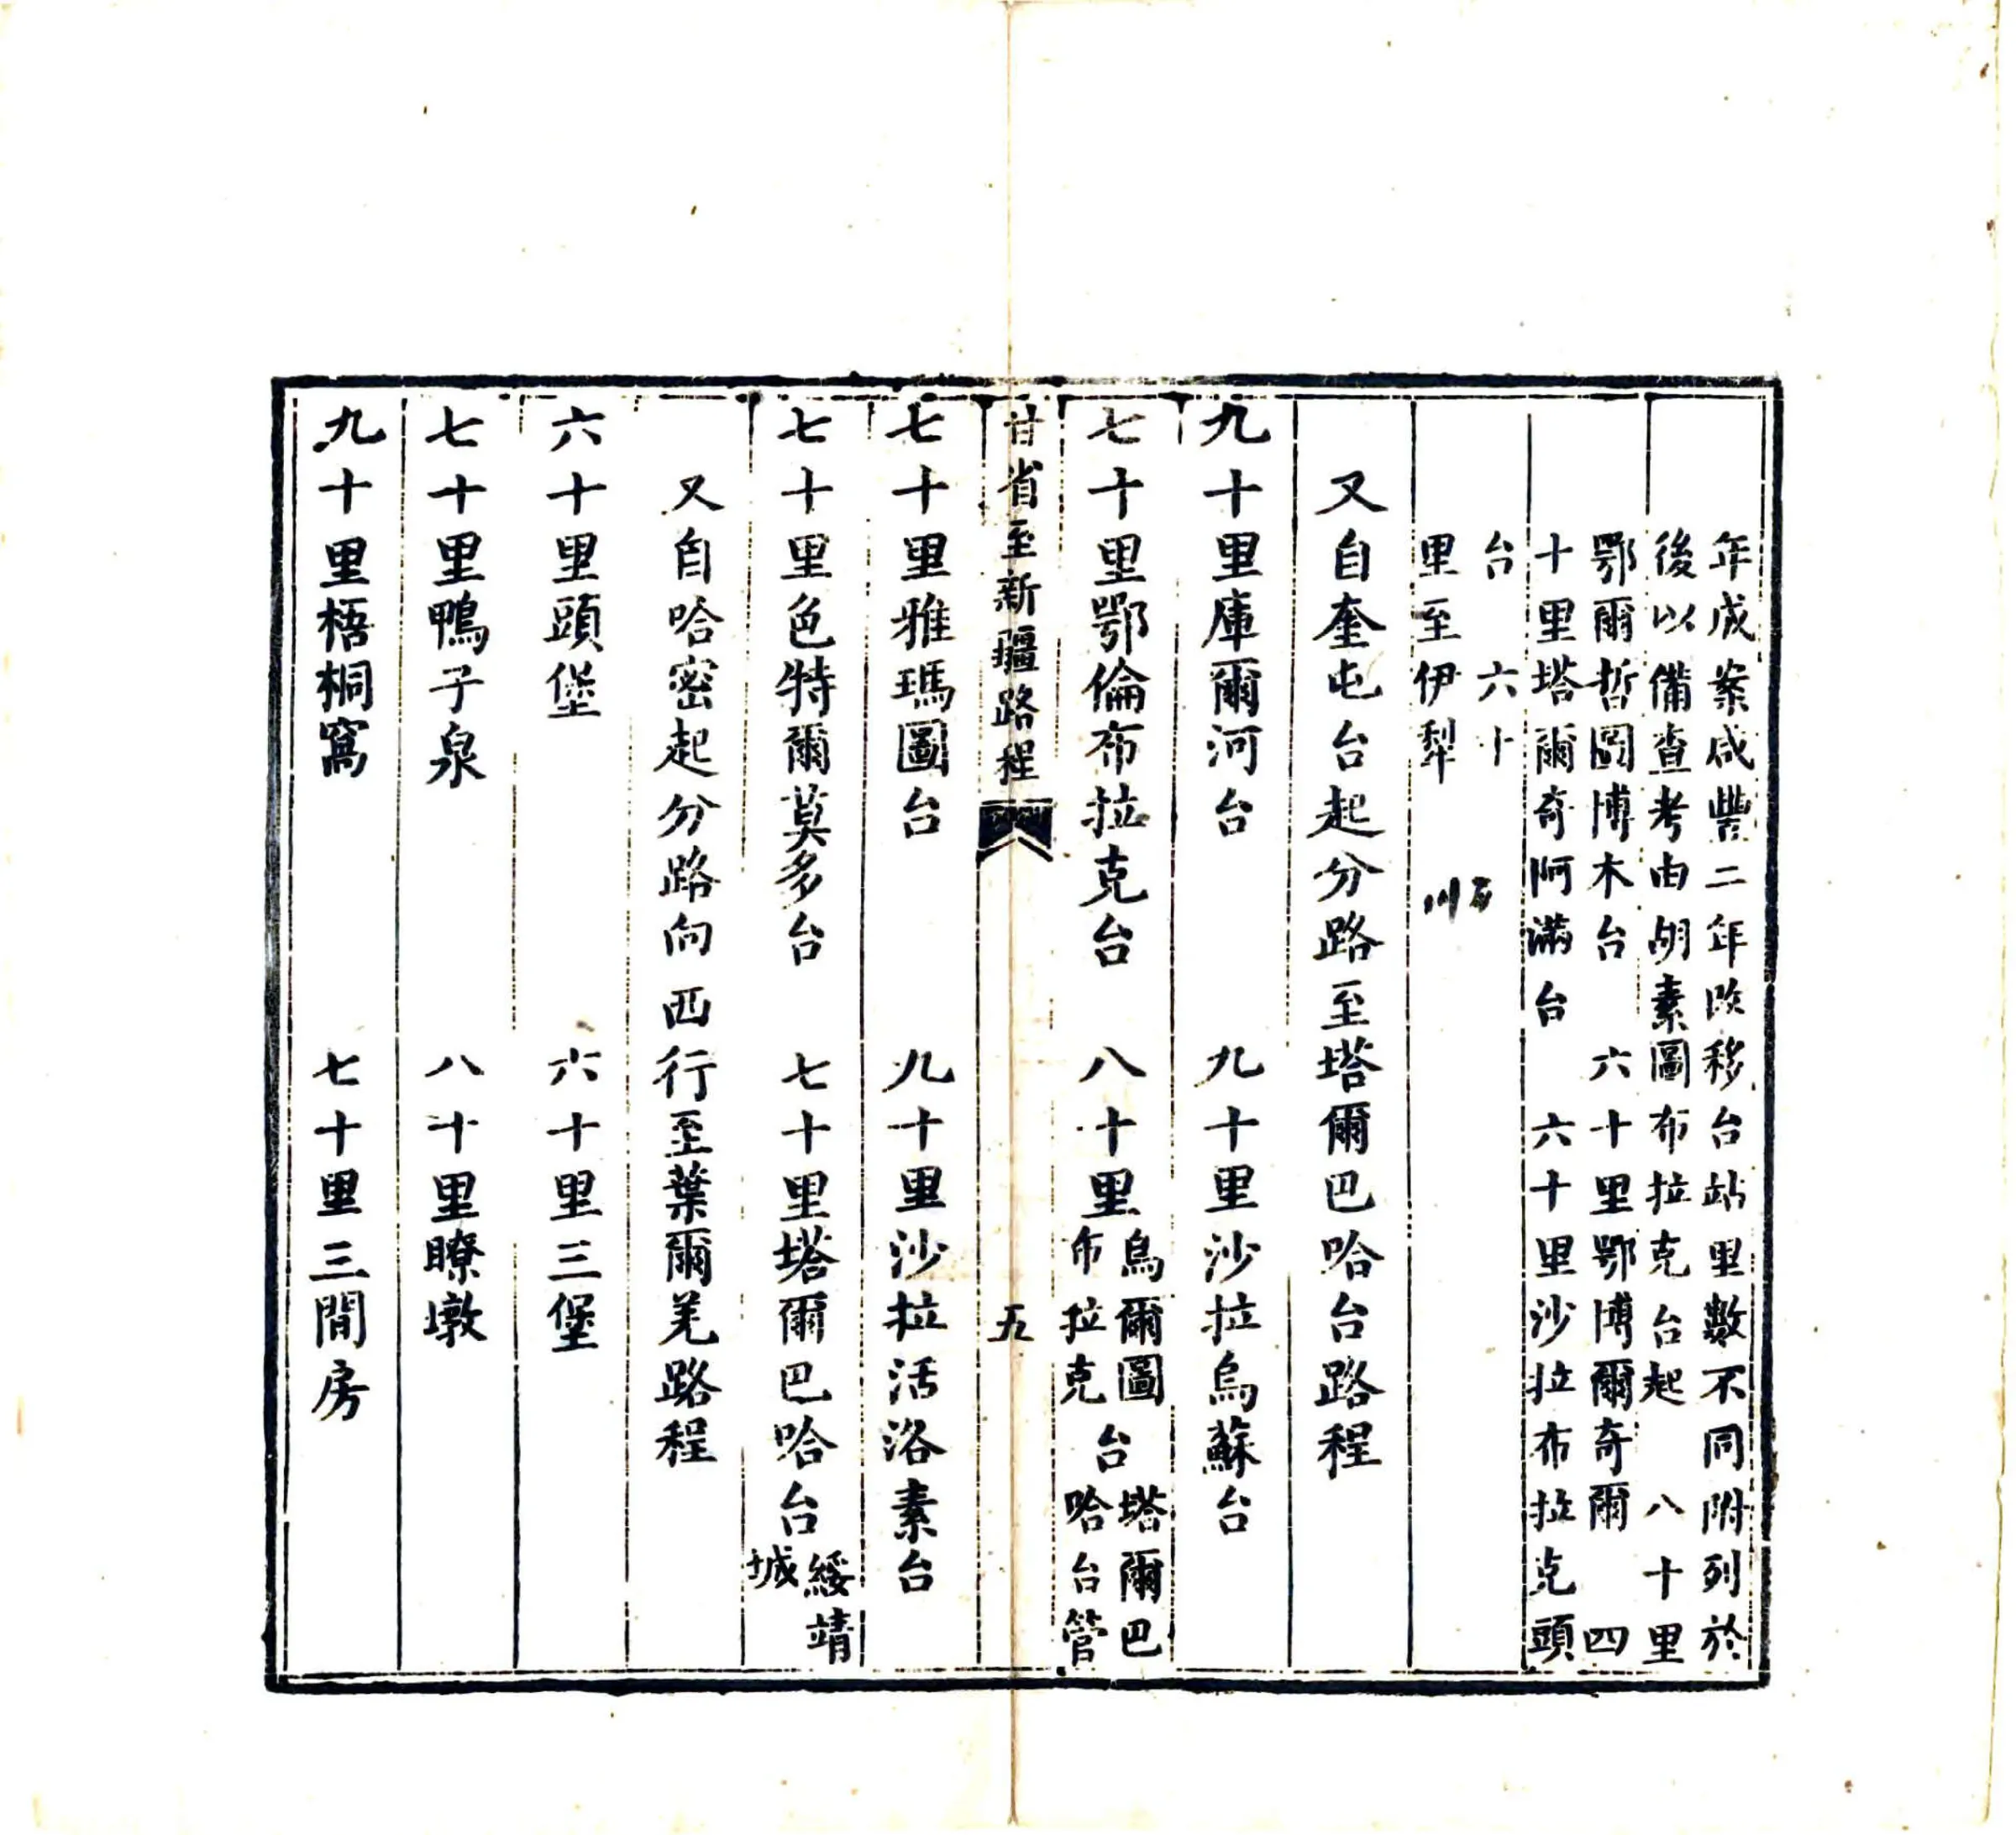 年成案咸豐二年改移台站里數不同附列於
後以備查考由胡素圖布拉克台起 八十里
鄂爾哲圖博木台 六十里鄂博爾奇爾 四
十里塔爾奇阿滿台 六十里沙拉布拉克頭
台 六十
里至伊犁
又自奎屯台起分路至塔爾巴哈台路程
九十里庫爾河台 九十里沙拉烏蘇台
七十里鄂倫布拉克台 八十里烏爾圖布拉克台塔爾巴哈台管
甘省至新疆路程 五
七十里雅瑪圖台 九十里沙拉活洛素台
七十里色特爾莫多台 七十里塔爾巴哈台綏靖城
又自哈密起分路向西行至葉爾羌路程
六十里頭堡 六十里三堡
七十里鴨子泉 八十里瞭墩
九十里梧桐窩 七十里三間房